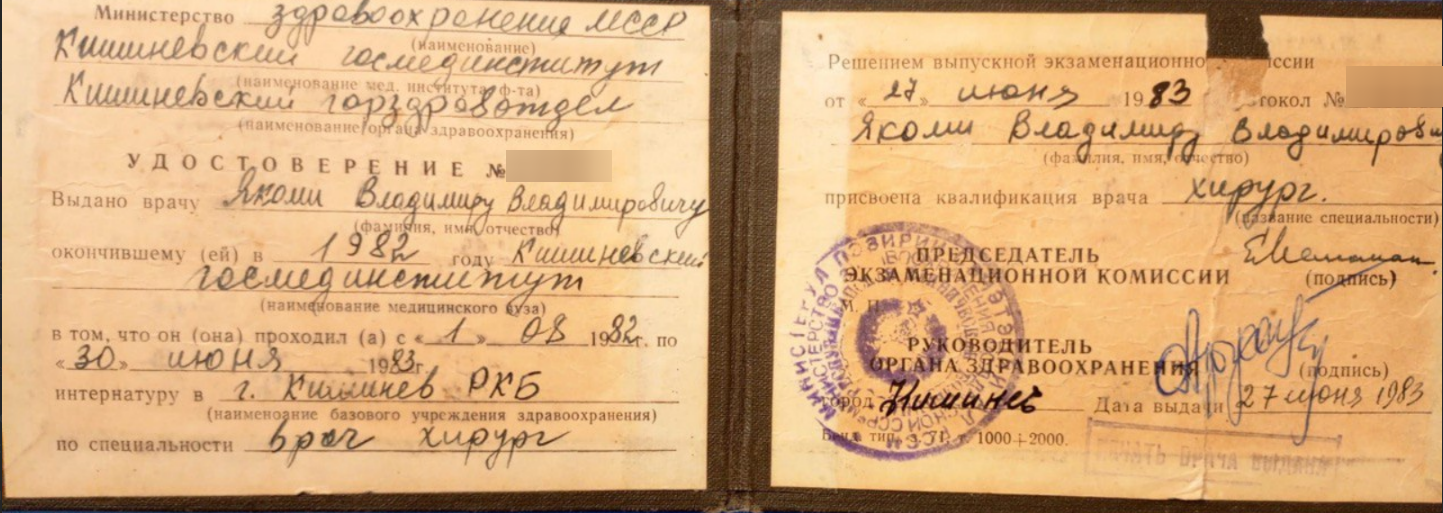 Министерство здравоохранение МССР
(наименование)
Кишиневский госмединститут
(наименование мед. института, ф-та)
Кишиневский горздравотдел
(наименование органа здравоохранения)
УДОСТОВЕРЕНИЕ №
Выдано врачу Якоми Владимиру Владимировичу
(фамилия, имя, отчество)
окончившему (ей) в 1982 году Кишиневский
госмединститут
(наименование медицинского вуза)
в том, что он (она) проходил (а) с « 1 » 08 1982 г. по
«30» июня 1983 г.
интернатуру в г. Кишинев РКБ
(наименоание базового учреждения здравоохранения)
по специальности врач хирург
Решением выпускной экзаменационно ссии
от « 27 » июня 1983 токол №
Якоми Владимиру Владимирови
(фамилия, имя, отчество)
присвоена квалификация врача хирург.
(название специальности)
ПРЕДСЕДАТЕЛЬ
ЭКЗАМЕНАЦИОННОЙ КОМИССИИ
(подпись)
М. П.
РУКОВОДИТЕЛЬ
ОРГАНА ЗДРАВООХРАНЕНИЯ
(подпись)
город Кишинев Дата выдачи 27 июня 1983
Бенд. тип. з. 71. т. 1000+2000.
ПЕЧАТЬ ВРАЧА ВЫДАНА